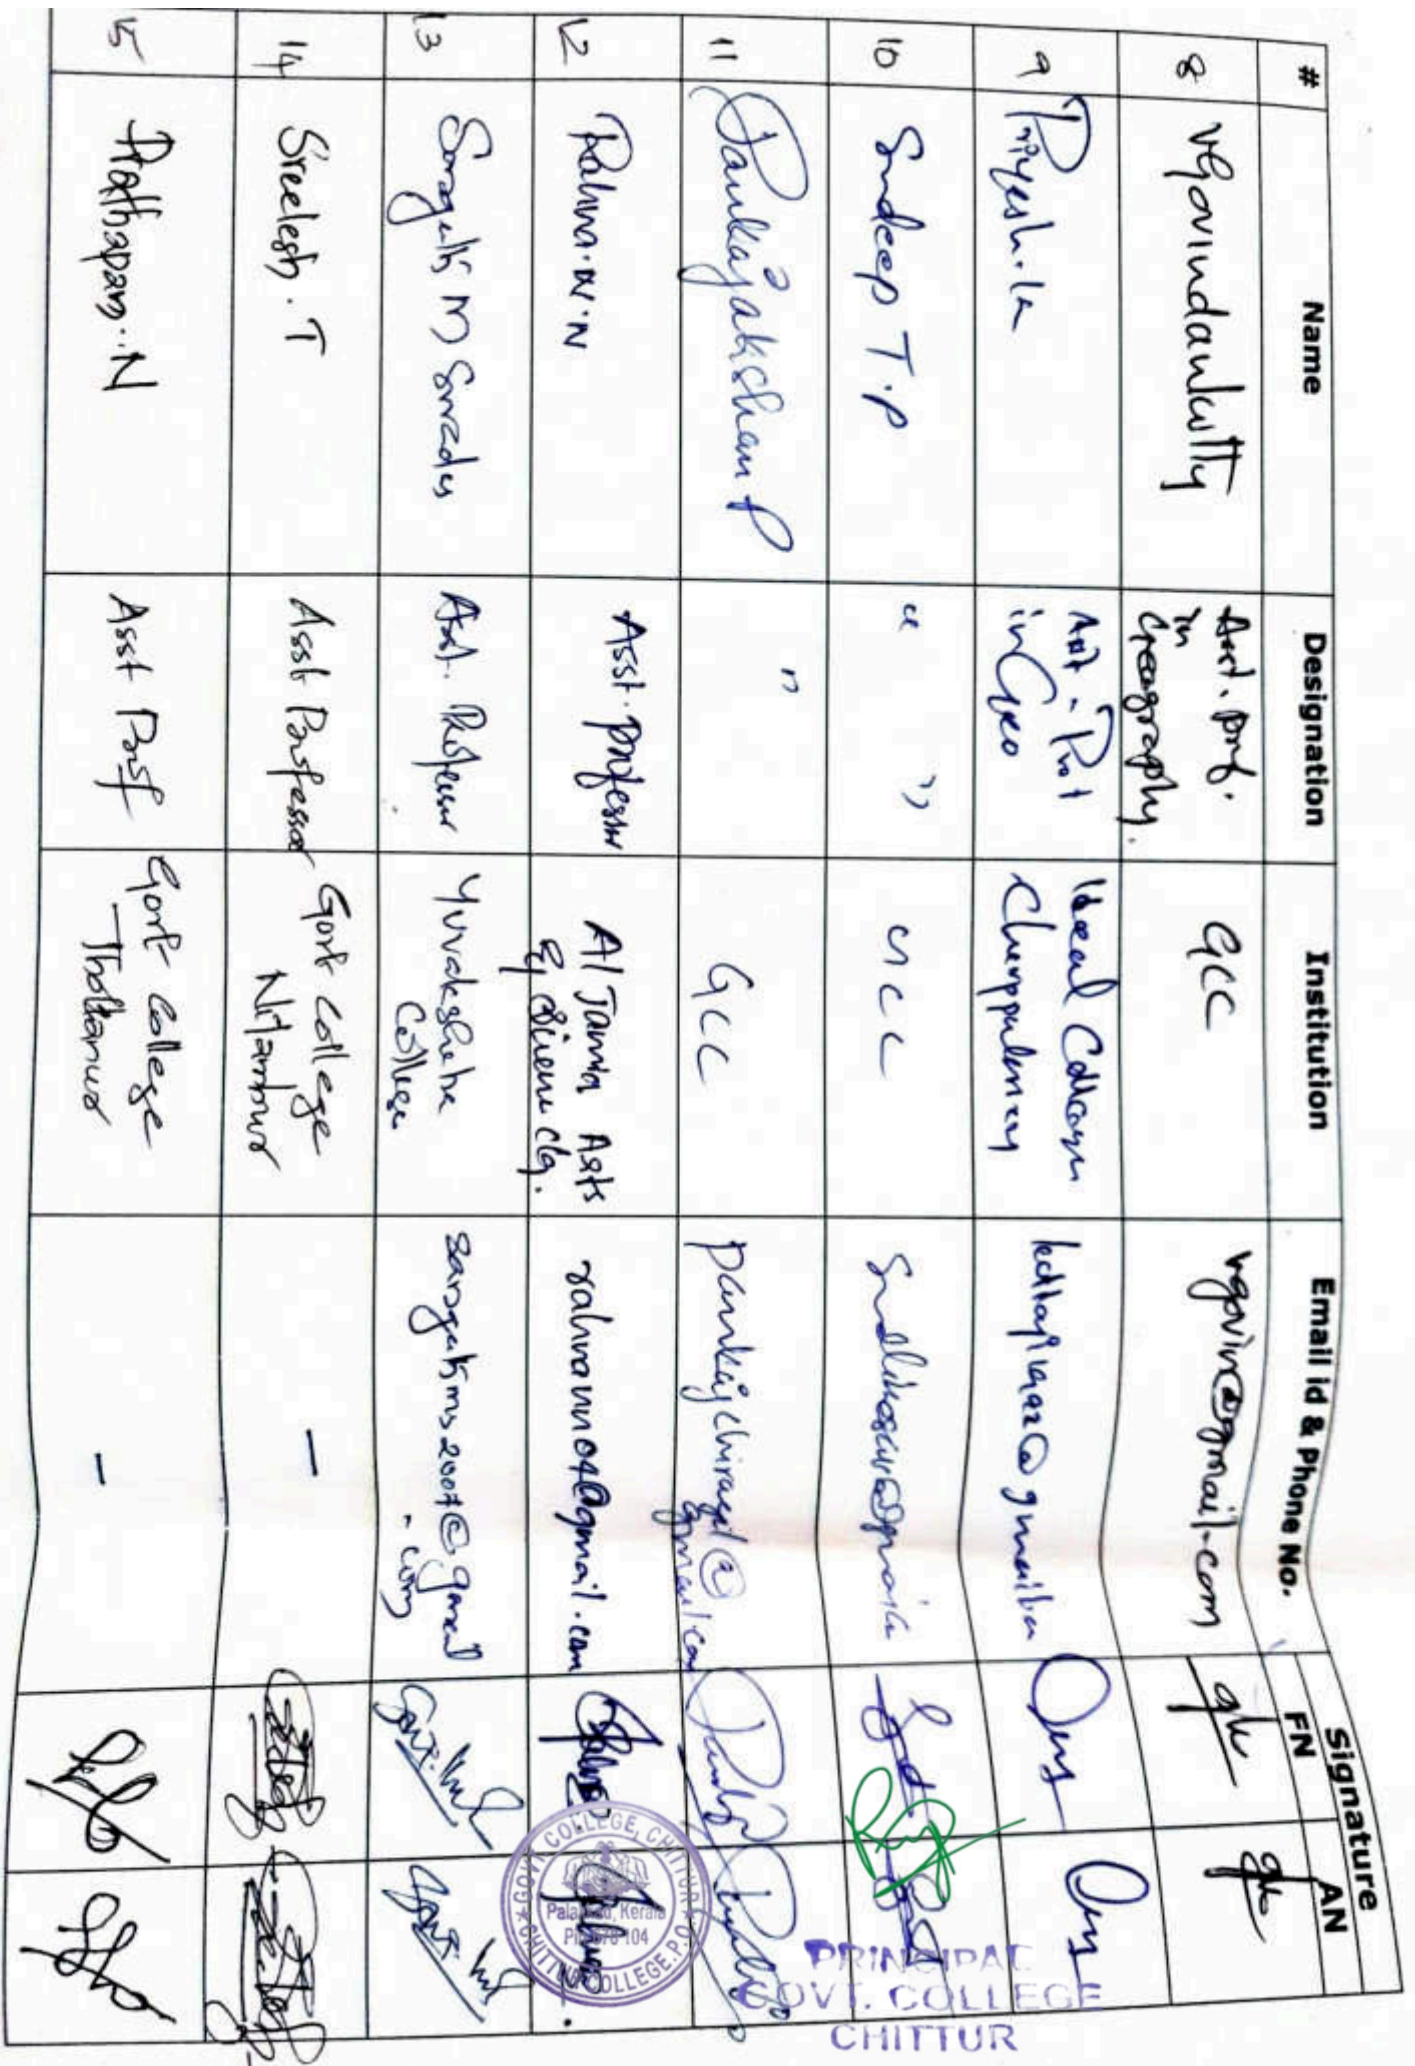 # Name Designation Institution Email id & Phone No. Signature
FN AN
8 VGovindankutty Asst. prof. in Geography. GCC vgovin@gmail.com
9 Priyesh.k Asst. Prof in Geo Ideal College Cherpulassery
10 Sandeep T.P " " GCC
11 Pankajakshan P " GCC pankajchirayil@gmail.com
12 Rahna.N.N Asst. professor Al Jamia Arts & Science Clg. rahnann04@gmail.com
13 Sarayuth M Asst. Professor Yuvakshetra College
14 Sreelesh. T Asst Professor Govt College Nilambur -
15 Prathapan. N Asst Prof Govt College -
GOVT. COLLEGE, CHITTUR
Palakkad, Kerala
Pin 678 104
CHITTUR COLLEGE.P.O
PRINCIPAL
GOVT. COLLEGE
CHITTUR